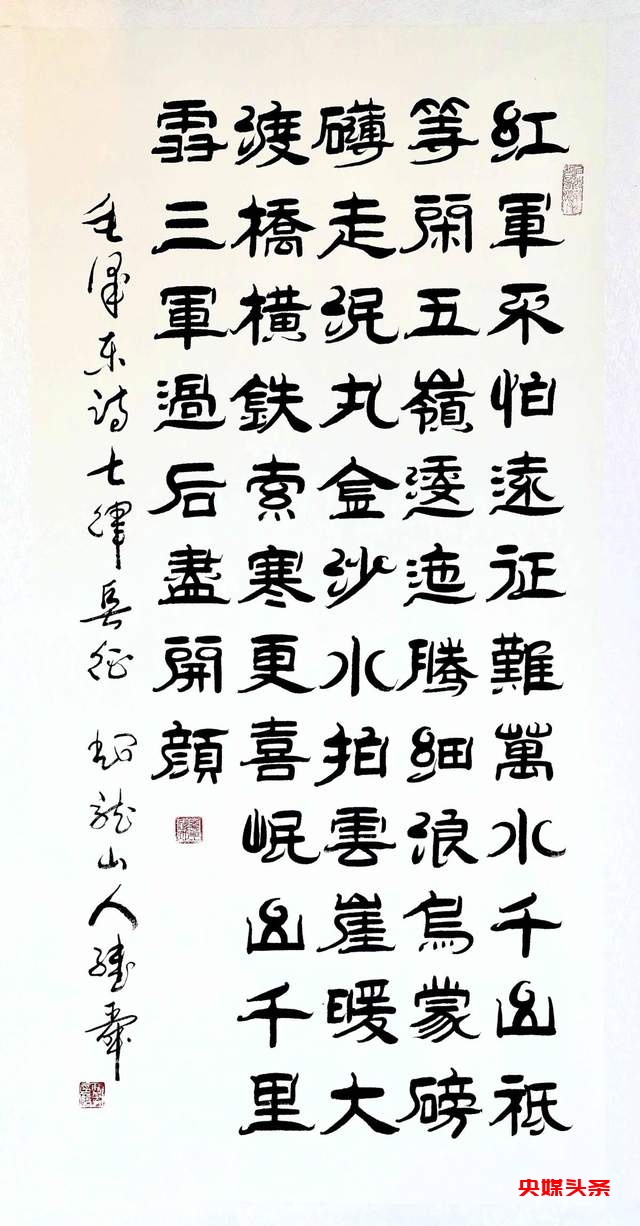 紅軍不怕遠征難萬水千山祇
等閑五嶺逶迤騰細浪烏蒙磅
礴走泥丸金沙水拍雲崖暖大
渡橋橫鉄索寒更喜岷山千里
雪三軍過后盡開顔
毛澤東詩七律長征 龍山人
央媒头条